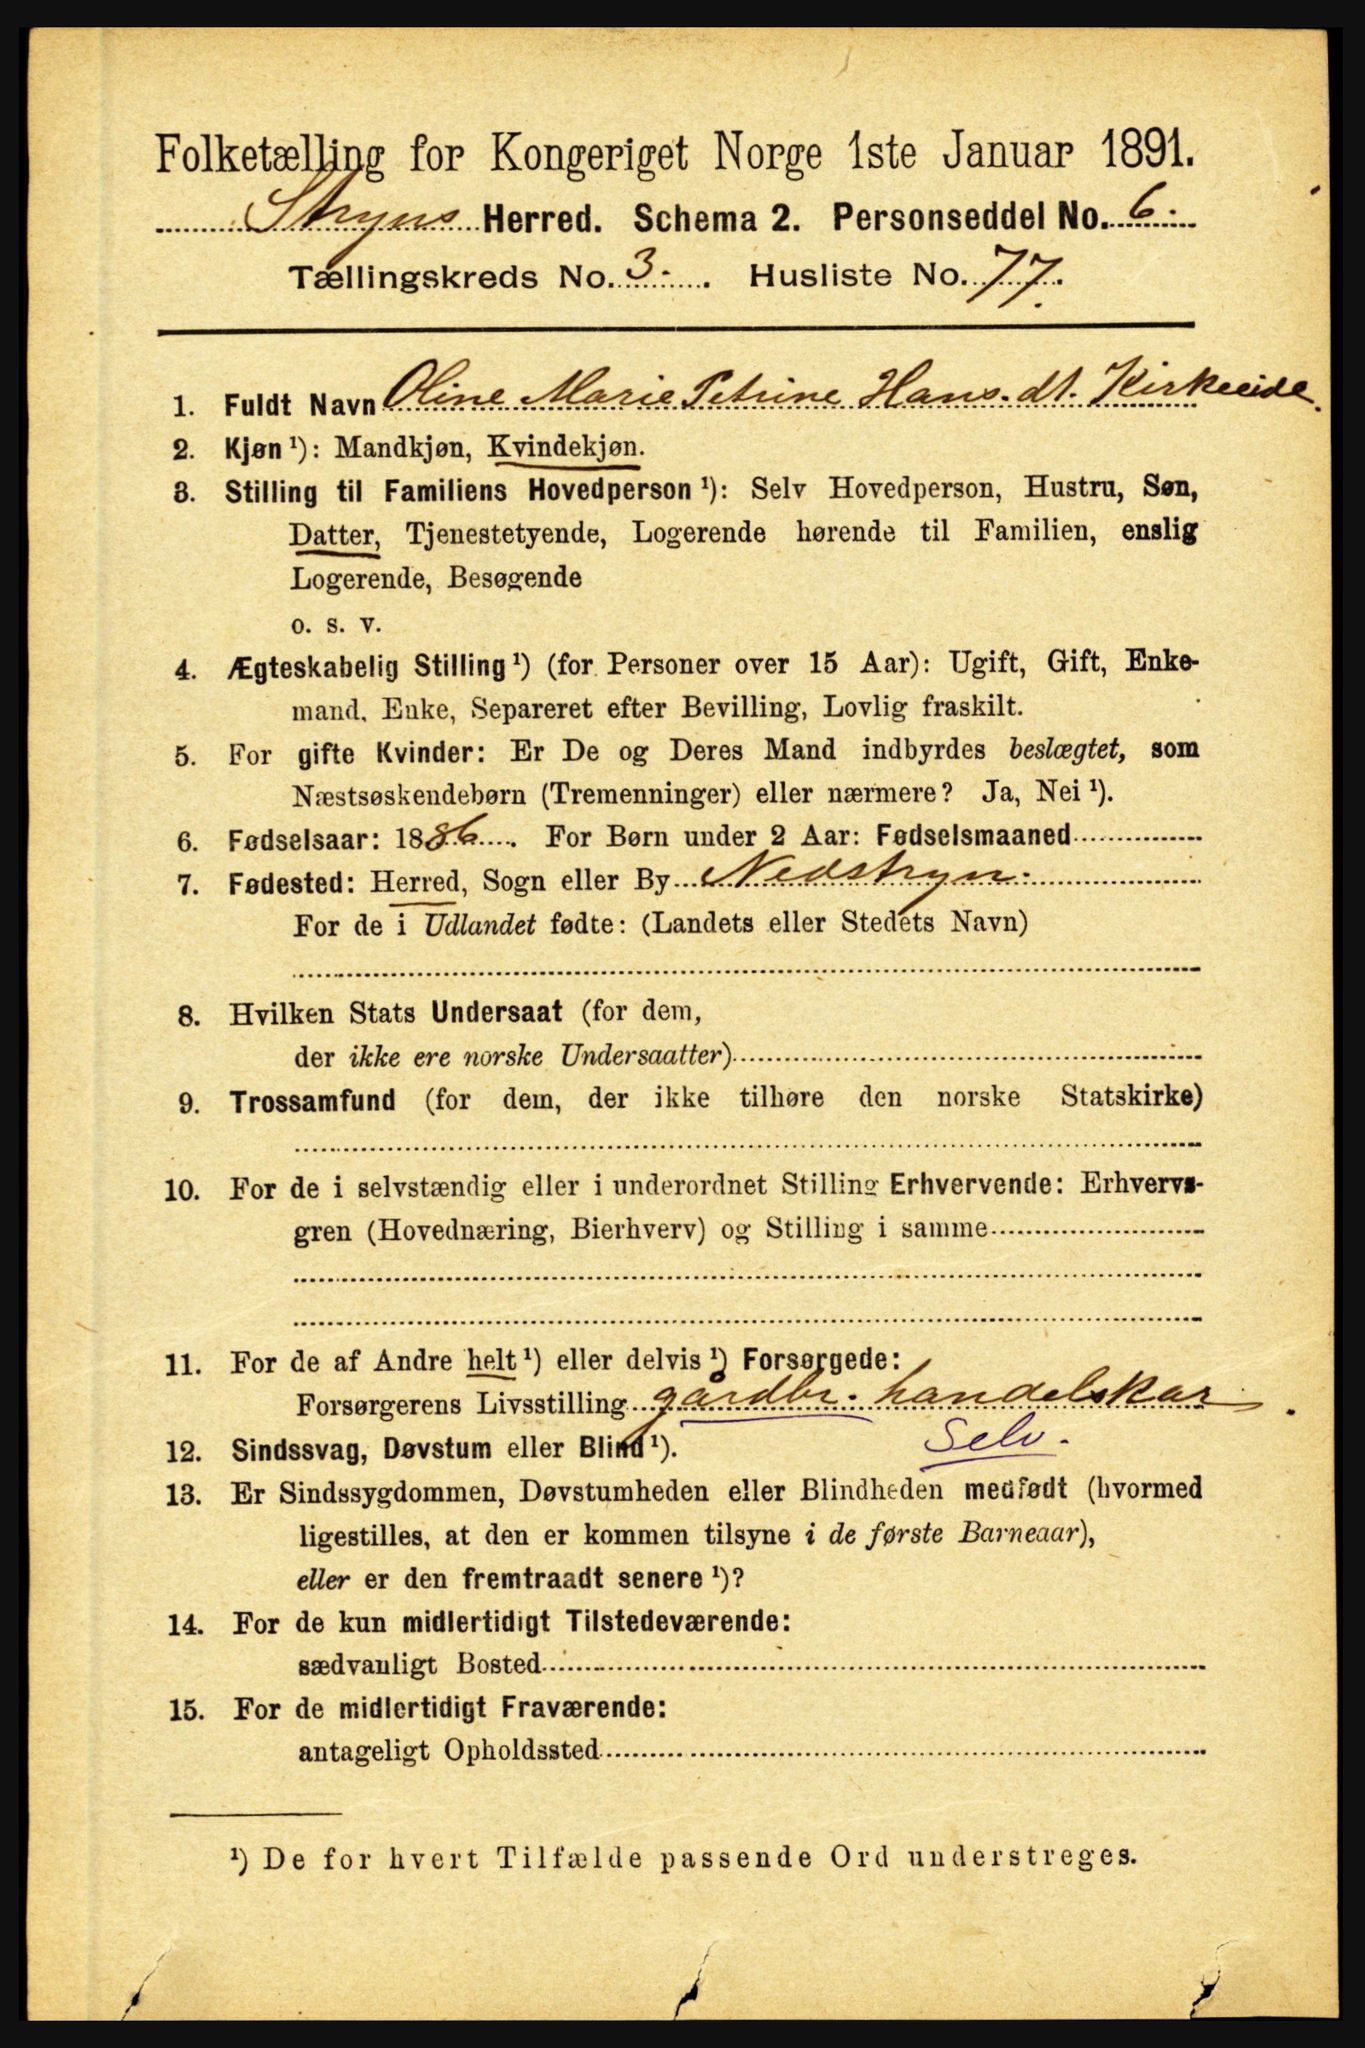 Folketælling for Kongeriget Norge 1ste Januar 1891.
Stryns Herred. Schema 2. Personseddel No. 6.
Tællingskreds No. 3. Husliste No. 77.
1. Fuldt Navn Oline Marie Petrine Hans. dt. Kirkeeide.
2. Kjøn ¹): Mandkjøn, Kvindekjøn.
3. Stilling til Familiens Hovedperson ¹): Selv Hovedperson, Hustru, Søn,
Datter, Tjenestetyende, Logerende hørende til Familien, enslig
Logerende, Besøgende
o. s. v.
4. Ægteskabelig Stilling ¹) (for Personer over 15 Aar): Ugift, Gift, Enke-
mand, Enke, Separeret efter Bevilling, Lovlig fraskilt.
5. For gifte Kvinder: Er De og Deres Mand indbyrdes beslægtet, som
Næstsøskendebørn (Tremenninger) eller nærmere? Ja, Nei ¹).
6. Fødselsaar: 1886. For Børn under 2 Aar: Fødselsmaaned
7. Fødested: Herred, Sogn eller By Nedstryn.
For de i Udlandet fødte: (Landets eller Stedets Navn)
8. Hvilken Stats Undersaat (for dem,
der ikke ere norske Undersaatter)
9. Trossamfund (for dem, der ikke tilhøre den norske Statskirke)
10. For de i selvstændig eller i underordnet Stilling Erhvervende: Erhvervs-
gren (Hovednæring, Bierhverv) og Stilling i samme
11. For de af Andre helt ¹) eller delvis ¹) Forsørgede:
Forsørgerens Livsstilling gårdbr. handelskar
Selv.
12. Sindssvag, Døvstum eller Blind ¹).
13. Er Sindssygdommen, Døvstumheden eller Blindheden medfødt (hvormed
ligestilles, at den er kommen tilsyne i de første Barneaar),
eller er den fremtraadt senere ¹)?
14. For de kun midlertidigt Tilstedeværende:
sædvanligt Bosted
15. For de midlertidigt Fraværende:
antageligt Opholdssted
¹) De for hvert Tilfælde passende Ord understreges.